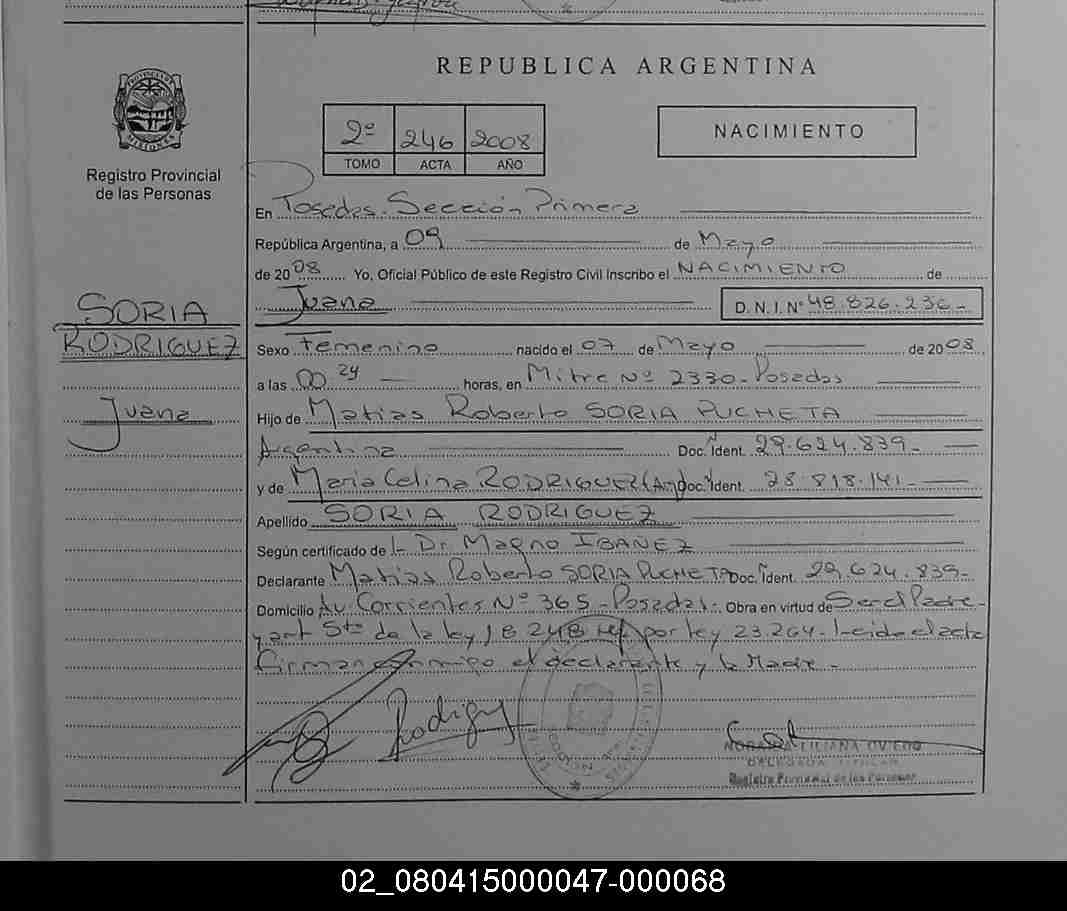 REPUBLICA ARGENTINA
2º 246 2008
TOMO ACTA AÑO
NACIMIENTO
Registro Provincial
de las Personas
En Posadas. Sección Primera
República Argentina, a 09 de Mayo
de 2008 Yo, Oficial Público de este Registro Civil Inscribo el NACIMIENTO de
Juana D.N.I. Nº 48.826.236-
SORIA
RODRIGUEZ
Juana
Sexo Femenino nacido el 07 de Mayo de 2008
a las 00 24 horas, en Mitre Nº 2330-Posadas
Hijo de Matias Roberto SORIA PUCHETA
Argentina Doc. Ident. 29.624.839-
y de Maria Celina RODRIGUEZ (Arg) Doc. Ident. 28.818.141-
Apellido SORIA RODRIGUEZ
Según certificado de l- Dr. Magno IBAÑEZ
Declarante Matias Roberto SORIA PUCHETA Doc. Ident. 29.624.839-
Domicilio Av. Corrientes Nº 365-Posadas. Obra en virtud de Ser el Padre-
y art 5to de la ley 18.248 ref. por ley 23.264- Leida el acta
firman conmigo el declarante y la Madre-
Rodrigu
NORA LILIANA OVIEDO
DELEGADA TITULAR
Registro Provincial de las Personas
02_080415000047-000068